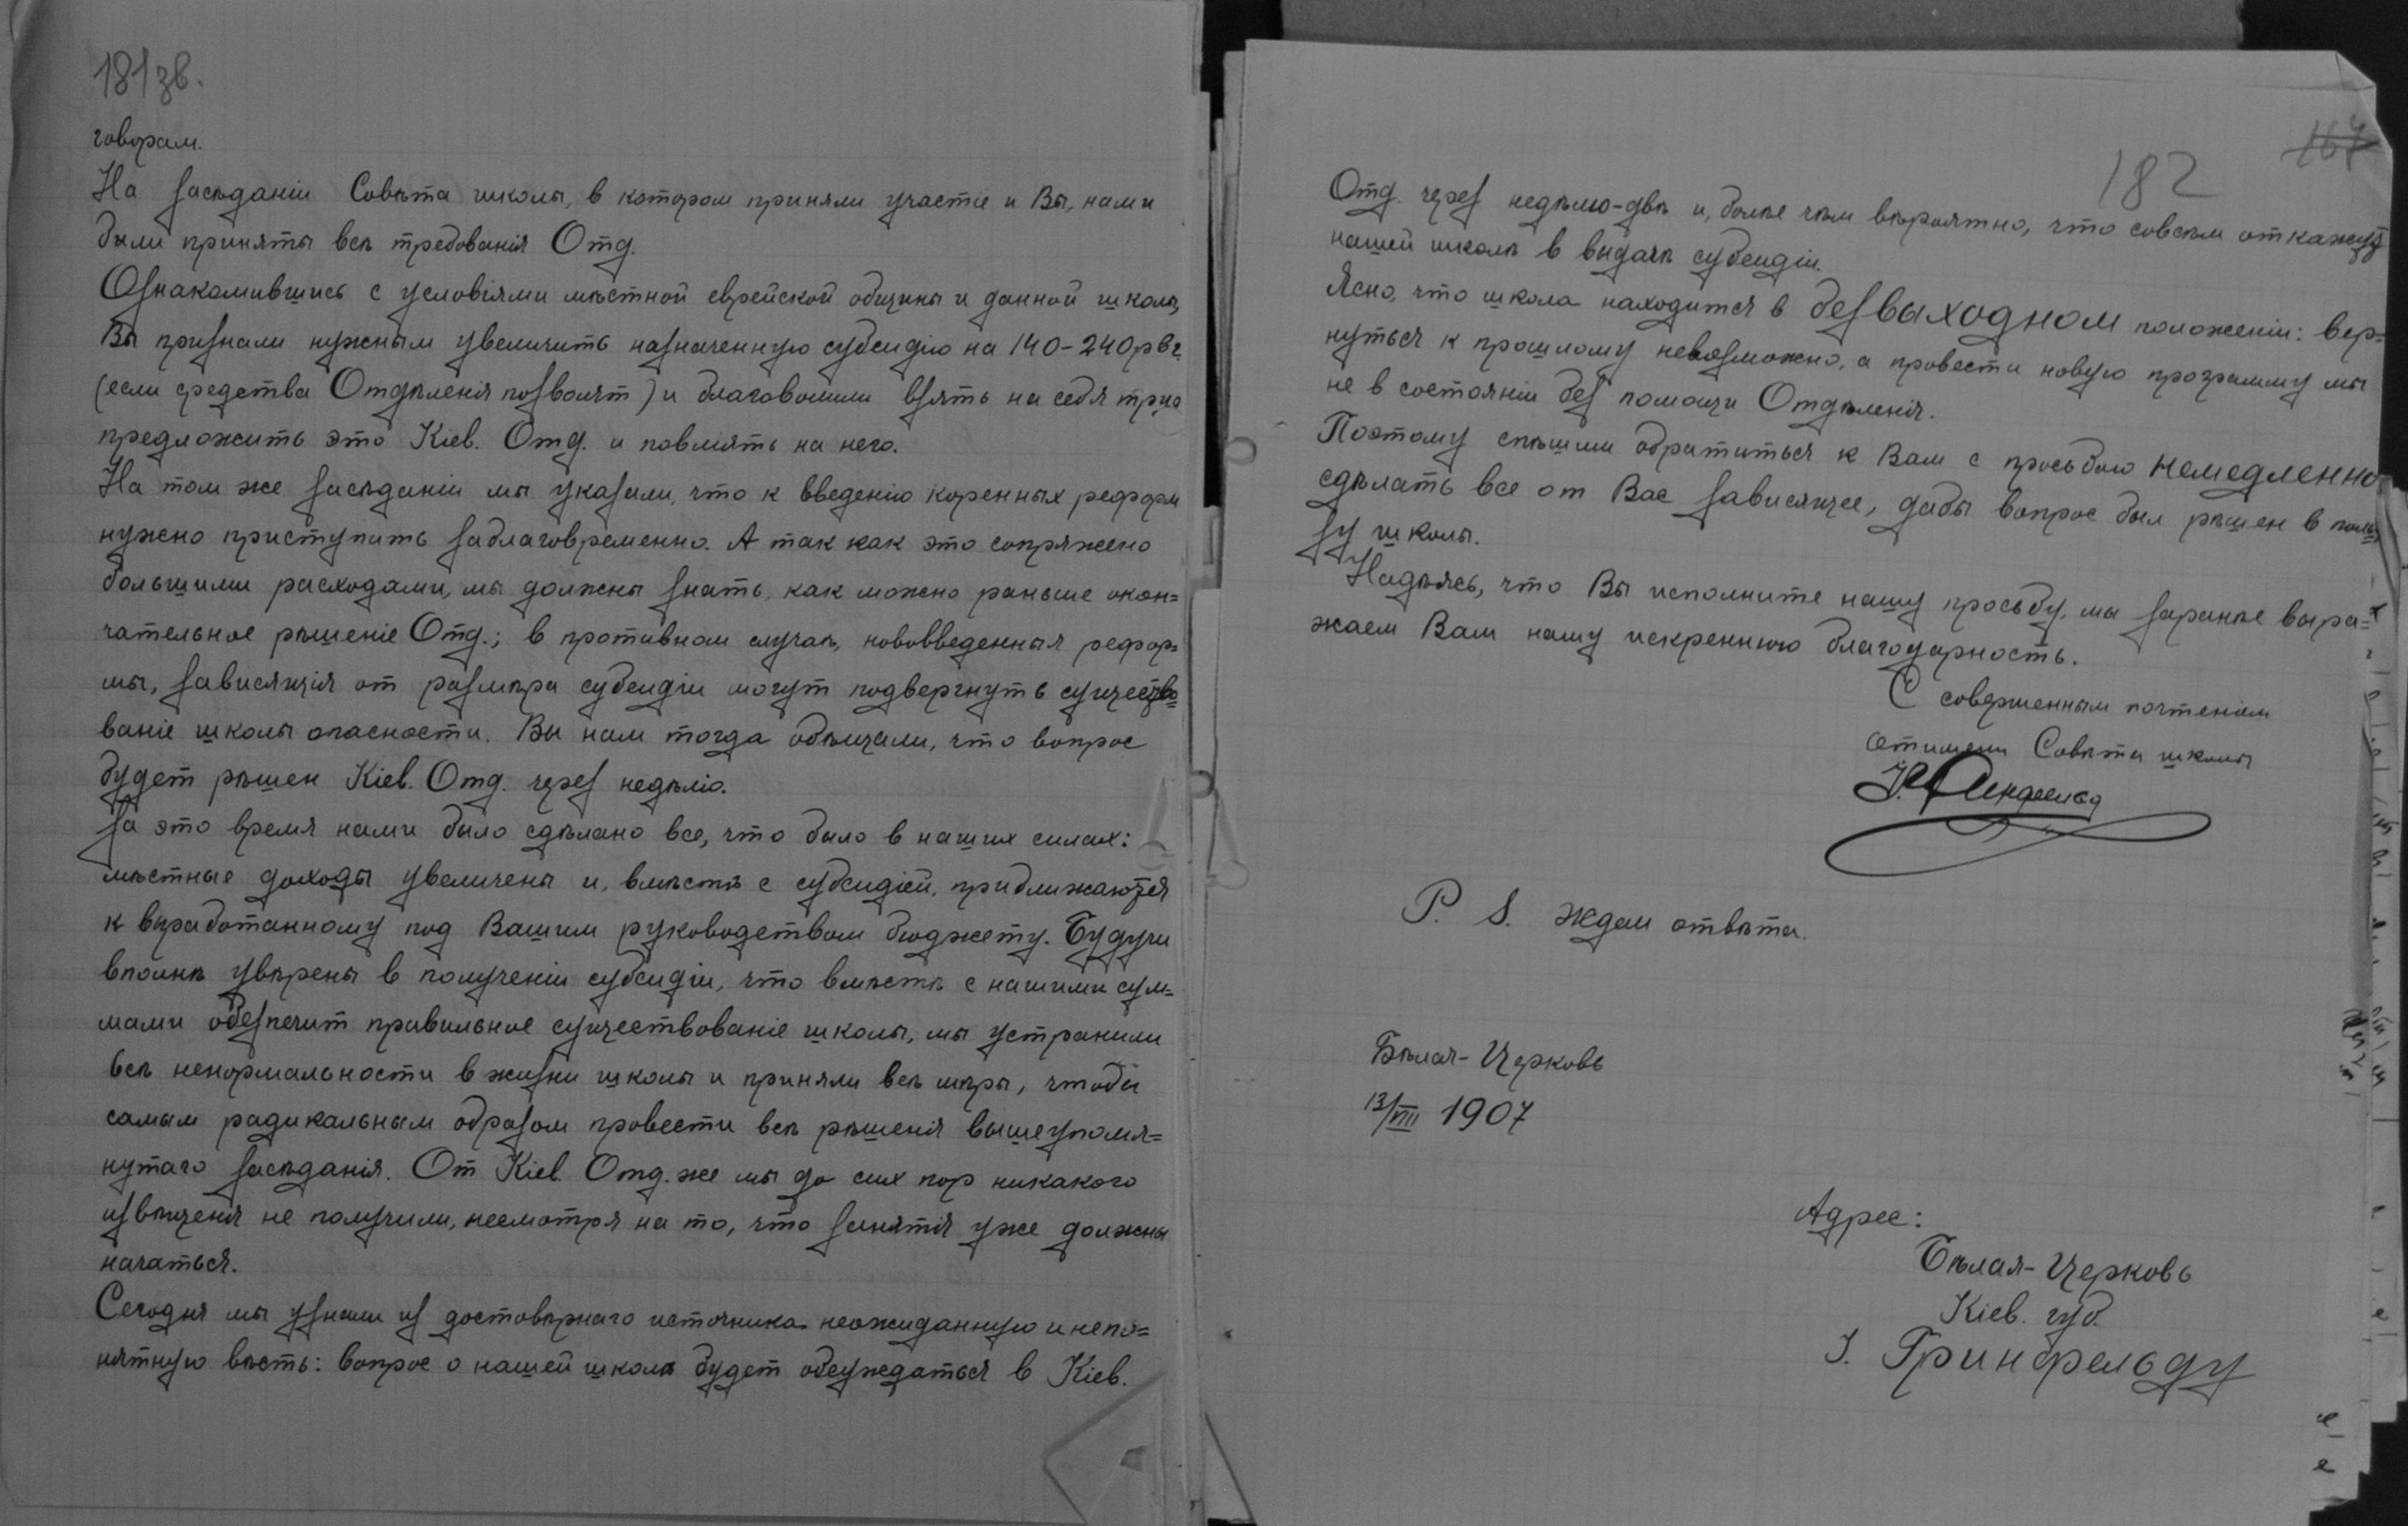 181зв.
говорам.
На засѣданіи Совѣта школы, в котором приняли участіе и Вы, нами
были приняты всѣ требованія Отд.
Ознакомившись с условіями мѣстной еврейской общины и данной школы,
Вы признали нужным увеличить назначенную субсидію на 140-240р в г.
(если средства Отдѣленія позволят) и благоволили взять на себя труд
предложить это Кіев. Отд. и повліять на него.
На том же засѣданіи мы указали, что к введенію коренных реформ
нужно приступить заблаговременно. А так как это сопряжено
большими расходами, мы должны знать, как можно раньше окон=
чательное рѣшеніе Отд.; в противном случаѣ, нововведенныя рефор=
мы, зависящія от размѣра субсидіи могут подвергнуть существо=
ваніе школы опасности. Вы нам тогда обѣщали, что вопрос
будет рѣшен Кіев. Отд. через недѣлю.
За это время нами было сдѣлано все, что было в наших силах:
мѣстные доходы увеличены и, вмѣстѣ с субсидіей, приближаются
к выработанному под Вашим руководством бюджету. Будучи
вполнѣ увѣрены в полученіи субсидіи, что вмѣстѣ с нашими сум=
мами обезпечит правильное существованіе школы, мы устранили
всѣ ненормальности в жизни школы и приняли всѣ мѣры, чтобы
самым радикальным образом провести всѣ рѣшенія вышеупомя=
нутаго засѣданія. От Кіев. Отд. же мы до сих пор никакого
извѣщенія не получили, несмотря на то, что занятія уже должны
начаться.
Сегодня мы узнали из достовѣрнаго источника неожиданную и непо=
нятную вѣсть: вопрос о нашей школѣ будет обсуждаться в Кіев.
164
182
Отд. через недѣлю-двѣ и, болѣе чѣм вѣроятно, что совсѣм откажут
нашей школѣ в выдачѣ субсидіи.
Ясно, что школа находится в безвыходном положеніи: вер=
нуться к прошлому невозможно, а провести новую программу мы
не в состояніи без помощи Отдѣленія.
Поэтому спѣшим обратиться к Вам с просьбою немедленно
сдѣлать все от Вас зависящее, дабы вопрос был рѣшен в поль=
зу школы.
Надѣясь, что Вы исполните нашу просьбу, мы заранѣе выра=
жаем Вам нашу искреннюю благодарность.
С совершенным почтеніем
от имени Совѣта школы
P. S. Ждем отвѣта.
Бѣлая-Церковь
13/VIII 1907
Адрес:
Бѣлая-Церковь
Кіев. губ.
I. Гринфельду